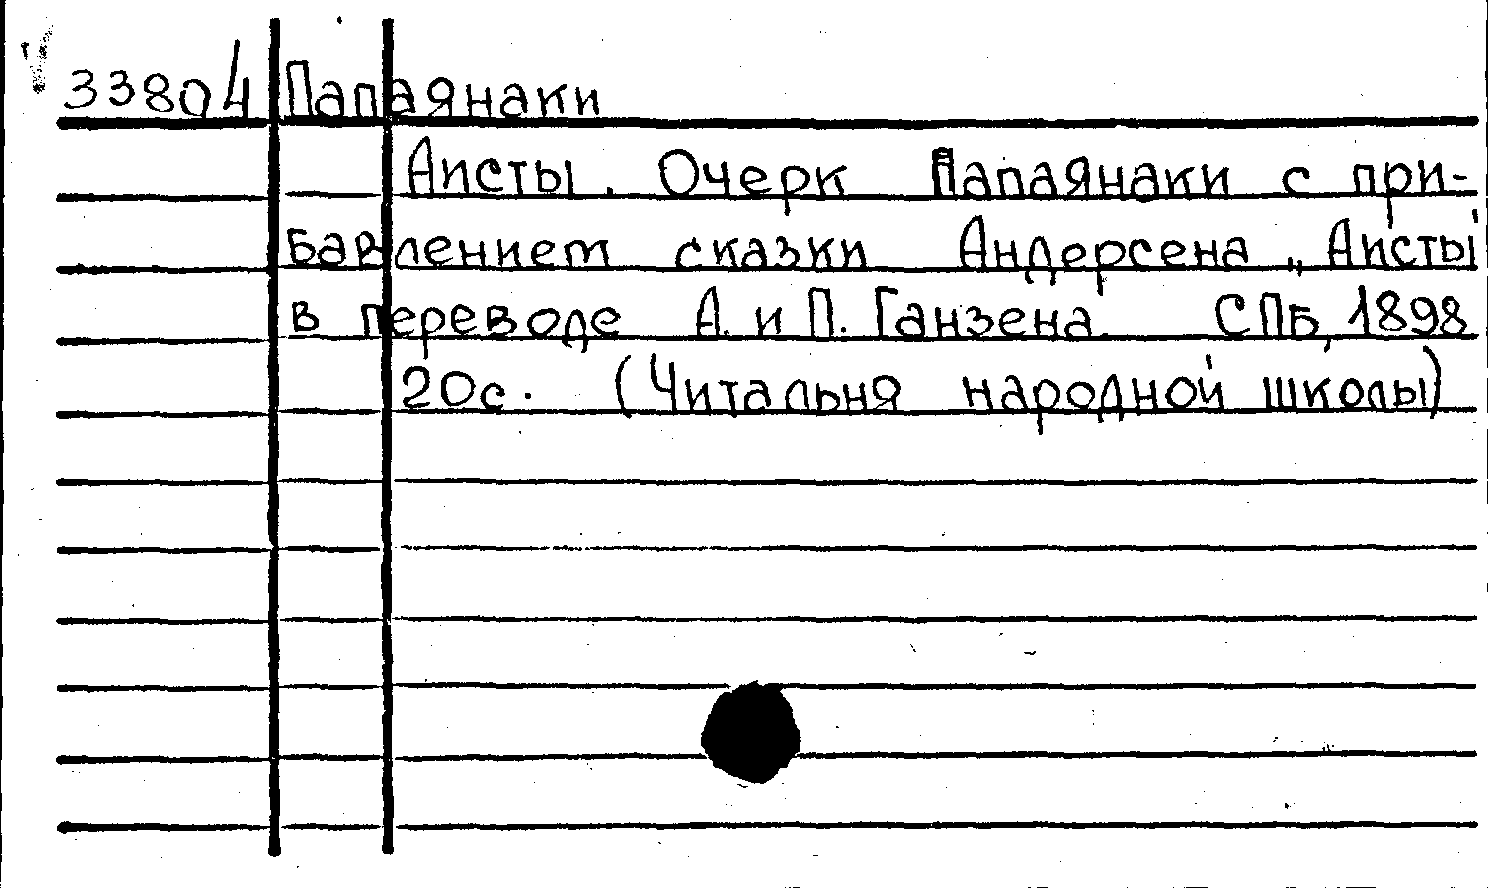 33804 Папаянаки
Аисты. Очерк Папаянаки с при-
бавлением сказки Андерсена „Аисты"
в переводе А. и П. Ганзена. СПБ, 1898
20с. (Читальня народной школы)